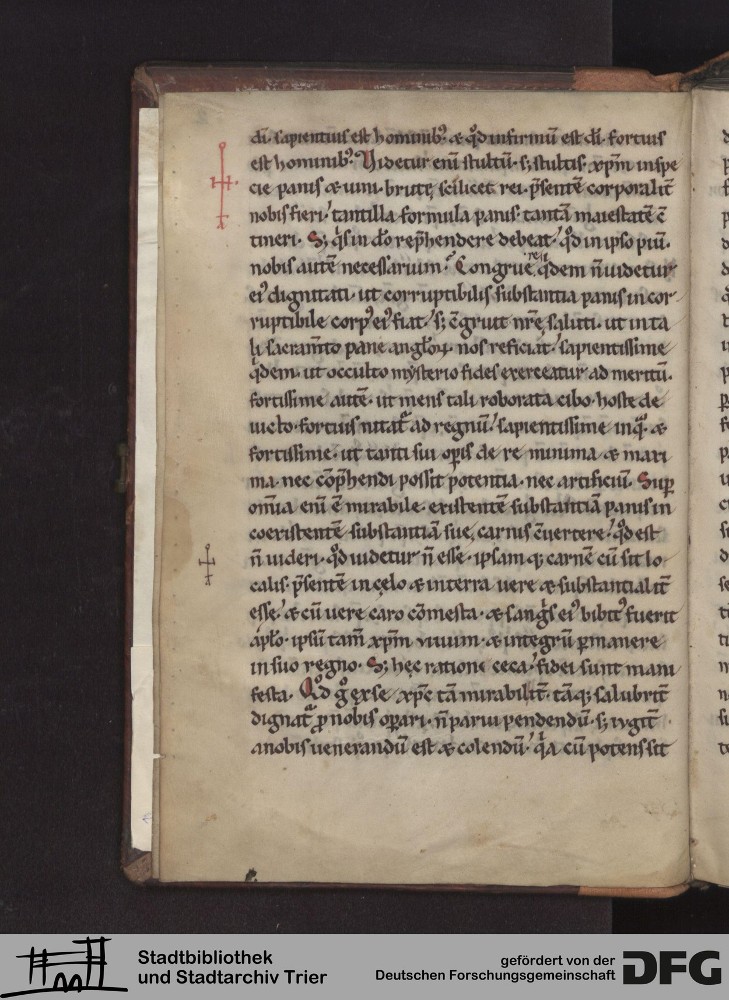 di. sapientius est hominib; & qd infirmū est di. fortius
est hominib; Videtur enī stultū. s; stultis. xpm in spe
cie panis & uini. brutę scilicet rei. p̄sentē corporalit̄
nobis fieri. tantilla formula panis. tantā maiestatē c̄
tineri. S; q̇s in do rep̄hendere debeat. qd in ipso piū.
nobis autē necessarium. Congruē q̇dem n̄ uidetur
ei᷒ dignitati. ut corruptibilis substantia panis in cor
ruptibile corp᷒ ei᷒ fiat. s; c̄gruit nr̄ę saluti. ut in ta
li sacram̄to pane anglo℞. nos reficiat. sapientissime
q̇dem. ut occulto mysterio fides exerceatur ad meritū.
fortissime autē. ut mens tali roborata cibo. hoste de
uicto. fortius nitat᷑ ad regnū. sapientissime inq̄. &
fortissime. ut tanti sui opis de re minima & maxi
ma. nec cōp̄hendi possit potentia. nec artificiū. Sup̱
omīa enī ē mirabile. existentē substantiā panis in
coexistentē substantiā suę carnis c̄uertere. qd est
n̄ uideri. qd uidetur n̄ esse. ipsam q; carnē cū sit lo
calis. p̄sentē in cęlo & in terra uere & substantialit̄
esse. & cū uere caro cōmesta. & sang̾s ei᷒ bibit᷒ fuerit
a pło. ipsū tam̄ xpm uiuum. & integrū ꝑmanere
in suo regno. S; hęc rationi ceca. fidei sunt mani
festa. Qd g̊ ex se xpc tā mirabilit̄. tāq; salubrit̄
dignat᷑ ꝓ nobis opari. n̄ parui pendendū. s; iugit̄
a nobis uenerandū est & colendū. q̇a cū potens sit
Stadtbibliothek
und Stadtarchiv Trier
gefördert von der
Deutschen Forschungsgemeinschaft
DFG